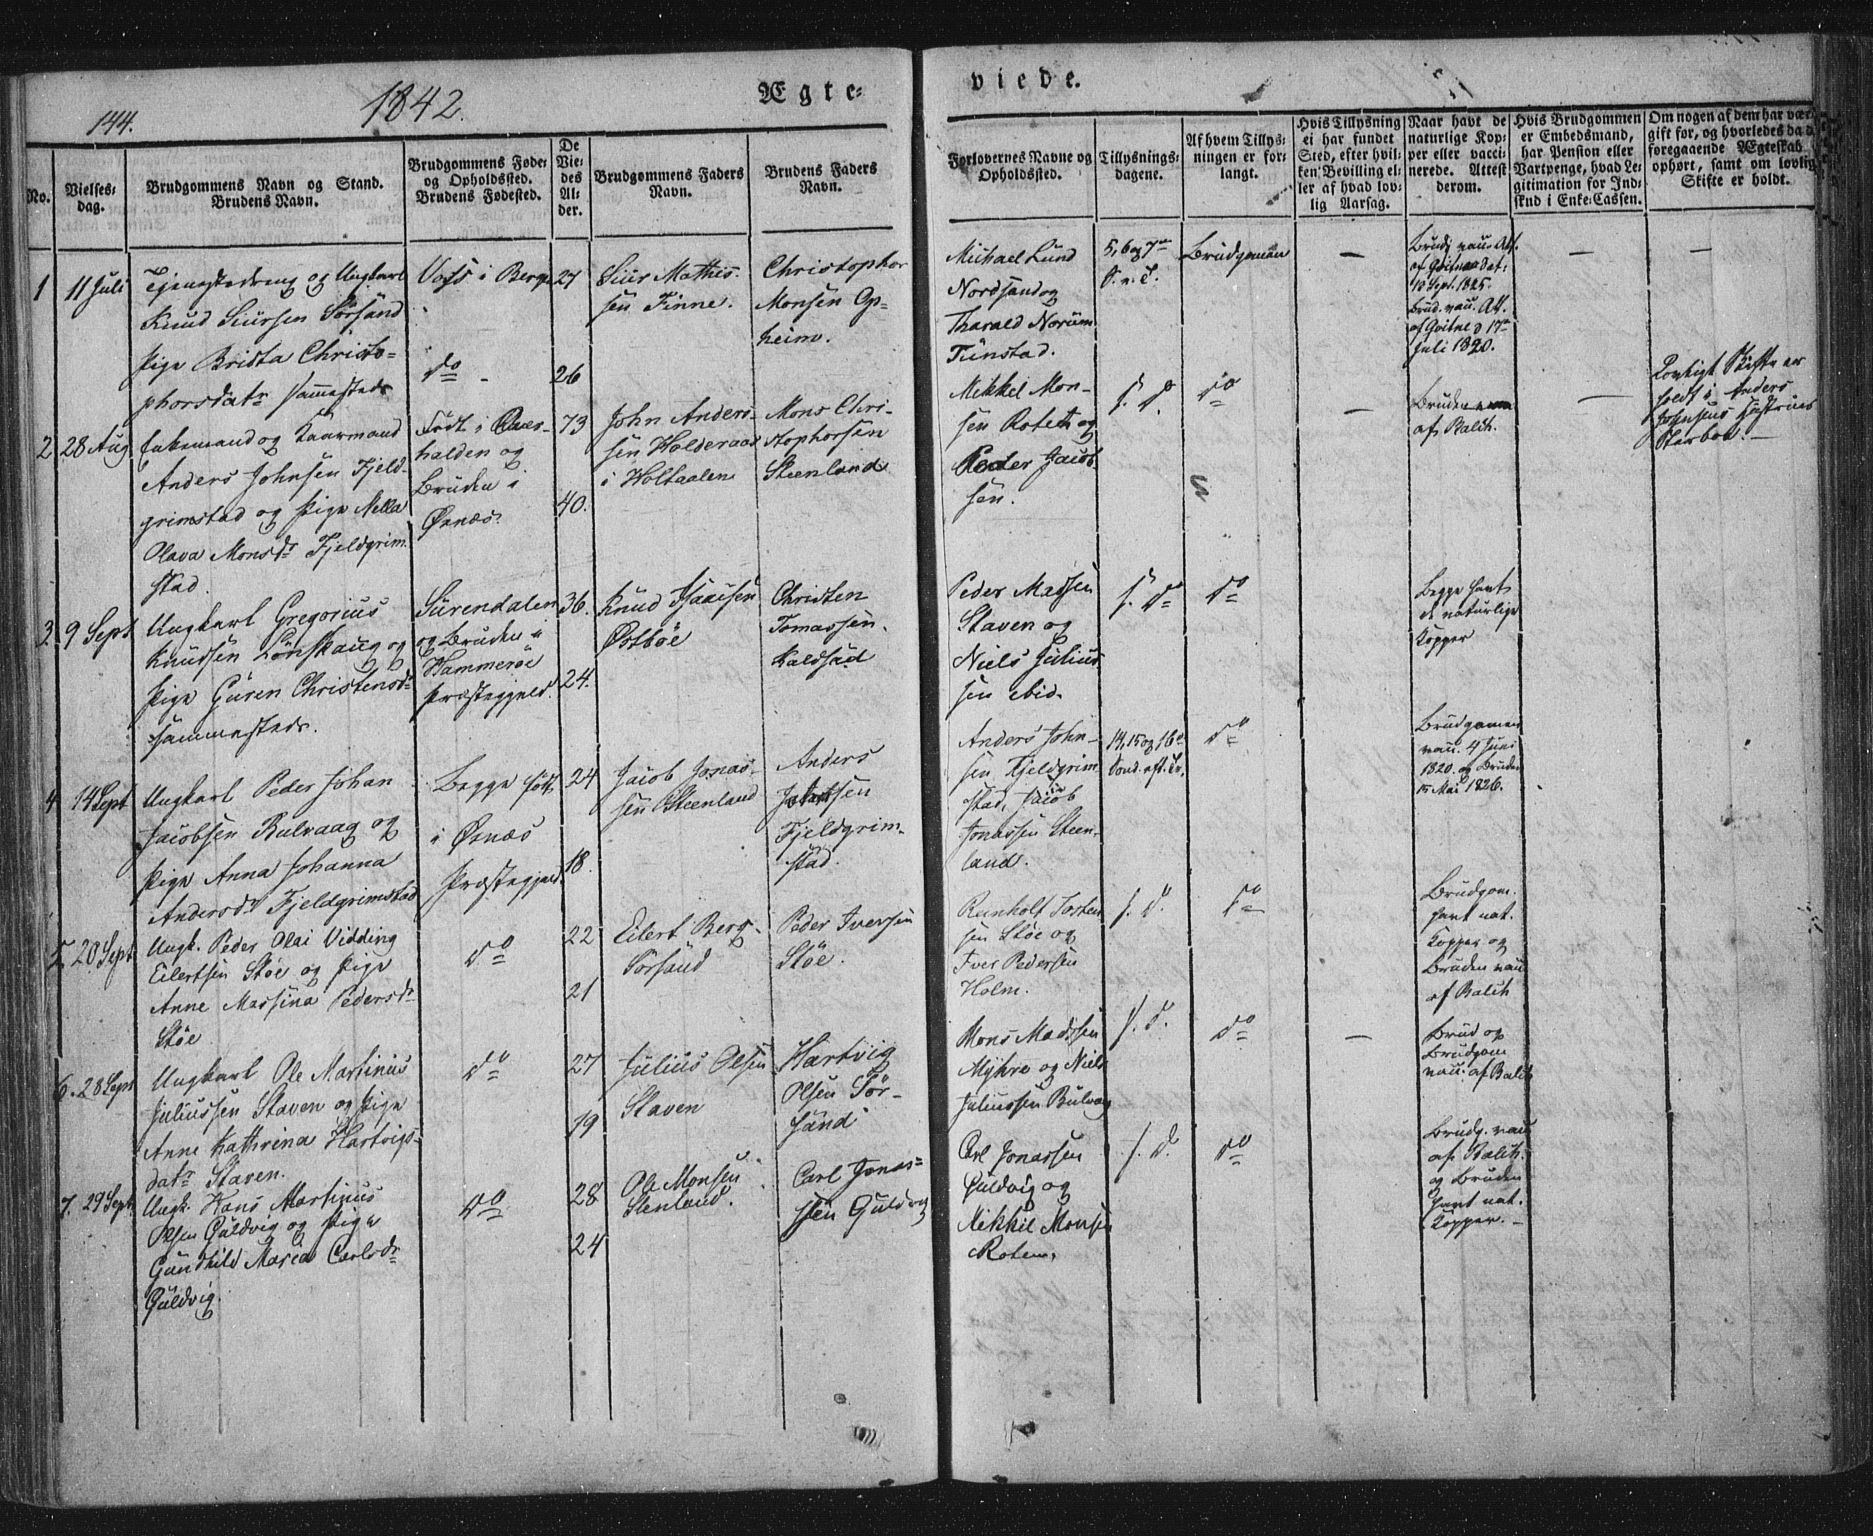 144.
1842.
Ægte-
viede.
No.
Vielses-
dag.
Brudgommens Navn og Stand.
Brudens Navn.
Brudgommens Føde-
og Opholdssted.
Brudens Fødested.
De
Vie-
des
Al-
der.
Brudgommens Faders
Navn.
Brudens Faders
Navn.
Forlovernes Navne og
Opholdssted.
Tillysnings-
dagene.
Af hvem Tillys-
ningen er for-
langt.
Hvis Tillysning
ei har fundet
Sted, efter hvil-
ken Bevilling el-
ler af hvad lov-
lig Aarsag.
Naar havt de
naturlige Kop-
per eller vacci-
nerede. Attest
derom.
Hvis Brudgommen
er Embedsmand,
har Pension eller
Vartpenge, hvad Le-
gitimation for Ind-
skud i Enke-Cassen.
Om nogen af dem har vær
gift for, og hvorledes da d
foregaaende Ægteskab
ophørt, samt om lovlig
Skifte er holdt.
1
11 Juli
Tjenestedreng og Ungkarl
Knud Siursen Sørsand
Pige Brista Christo-
phorsdatr sammesteds
Vofs i Bergn
do
27
26
Siur Mathis-
sen Finne.
Christophor
Monsen Op-
heim.
Michael Lund
Nordsand og
Tharald Norum
Tunstad.
5, 6 og 7de
S. n. T.
Brudgomen
—
Brudg. vau. Att.
af Goitned at:
18 Sept. 1825.
Brud. vau. Att.
af Goitned 17de
Juli 1820.
—
—
2
28 Aug
Enkemand og Kaarmand
Anders Johnsen Fjeld-
grimstad og Pige Nella
Olava Monsdr Fjeldgrim
stad.
Født i Over-
halden og
Bruden i
Øsnæs.
73
40.
John Anders-
sen Holderaas
i Holtaalen
Mons Chri-
stophorsen
Steenland
Mikkel Mon-
sen Roteth og
Peder Jacob-
sen.
s. D.
do
—
Bruden vau
af Balch.
—
Lovligt Skifte er
holdt i Anders
Johnsens Hustrues
Sterboe. —
3
9 Sept
Ungkarl Gregorius
Knudsen Lønskaug og
Pige Guren Christensdr
sammesteds.
Surendalen
og Bruden i
Hammerøe
Præstegjeld.
36.
24.
Knud Isaaisen
Østbøe
Christen
Tomassen
Kaldsad
Peder Madsen
Staven og
Niels Julius
sen ibid.
s. D
do
Begge havt
de naturlige
Kopper
4
14 Sept
Ungkarl Peder Johan
Jacobsen Rulvaag og
Pige Anna Johanna
Andersdr Fjeldgrimstad
Begge født
i Øsnæs
Præstegjeld.
24
18.
Jacob Jonas-
sen Steenland
Anders
Johnsen
Fjeldgrim-
stad.
Anders John-
sen Fjeldgrim
stad, Jacob
Jonassen Steen-
land.
14, 15 og 16de
Sond. eft. Tr.
do
Brudgomen
vau. 4 Juni
1820. og Bruden
15 Mai 1826.
5
20 Sept
Ungk. Peder Olai Vidding
Eilertsen Støe og Pige
Anne Massina Pedersdr
Støe
do
22
21
Eilert Berg
Sørsand
Peder Iversen
Støe.
Reinholt Torsten
sen Støe og
Iver Pedersen
Holm.
s. D.
do
Brudgom.
havt nat.
Kopper og
Bruden vau
af Balch
6.
28 Sept
Ungkarl Ole Martinus
Juliussen Staven og Pige
Anne Kathrina Hartvigs-
datr Staven.
do
27
19
Julius Olsen
Staven
Hartvig
Olsen Sør-
sand
Mons Madssen
Myhre og Niels
Juliussen Bulvag
s. D.
do
—
Brud og
Brudgom
vau. af Balch
7.
29 Sept.
Ungk. Hans Martinus
Olsen Guldvig og Pige
Gundhild Maria Carlsdr
Guldvig.
do
28
24
Ole Monsen
Stenland.
Carl Jonas-
sen Guldvig
Carl Jonassen
Guldvig og
Mikkil Monsen
Roten.
s. D.
do
Brudg. vau
af Balch.
og Bruden
havt nat.
Kopper. —